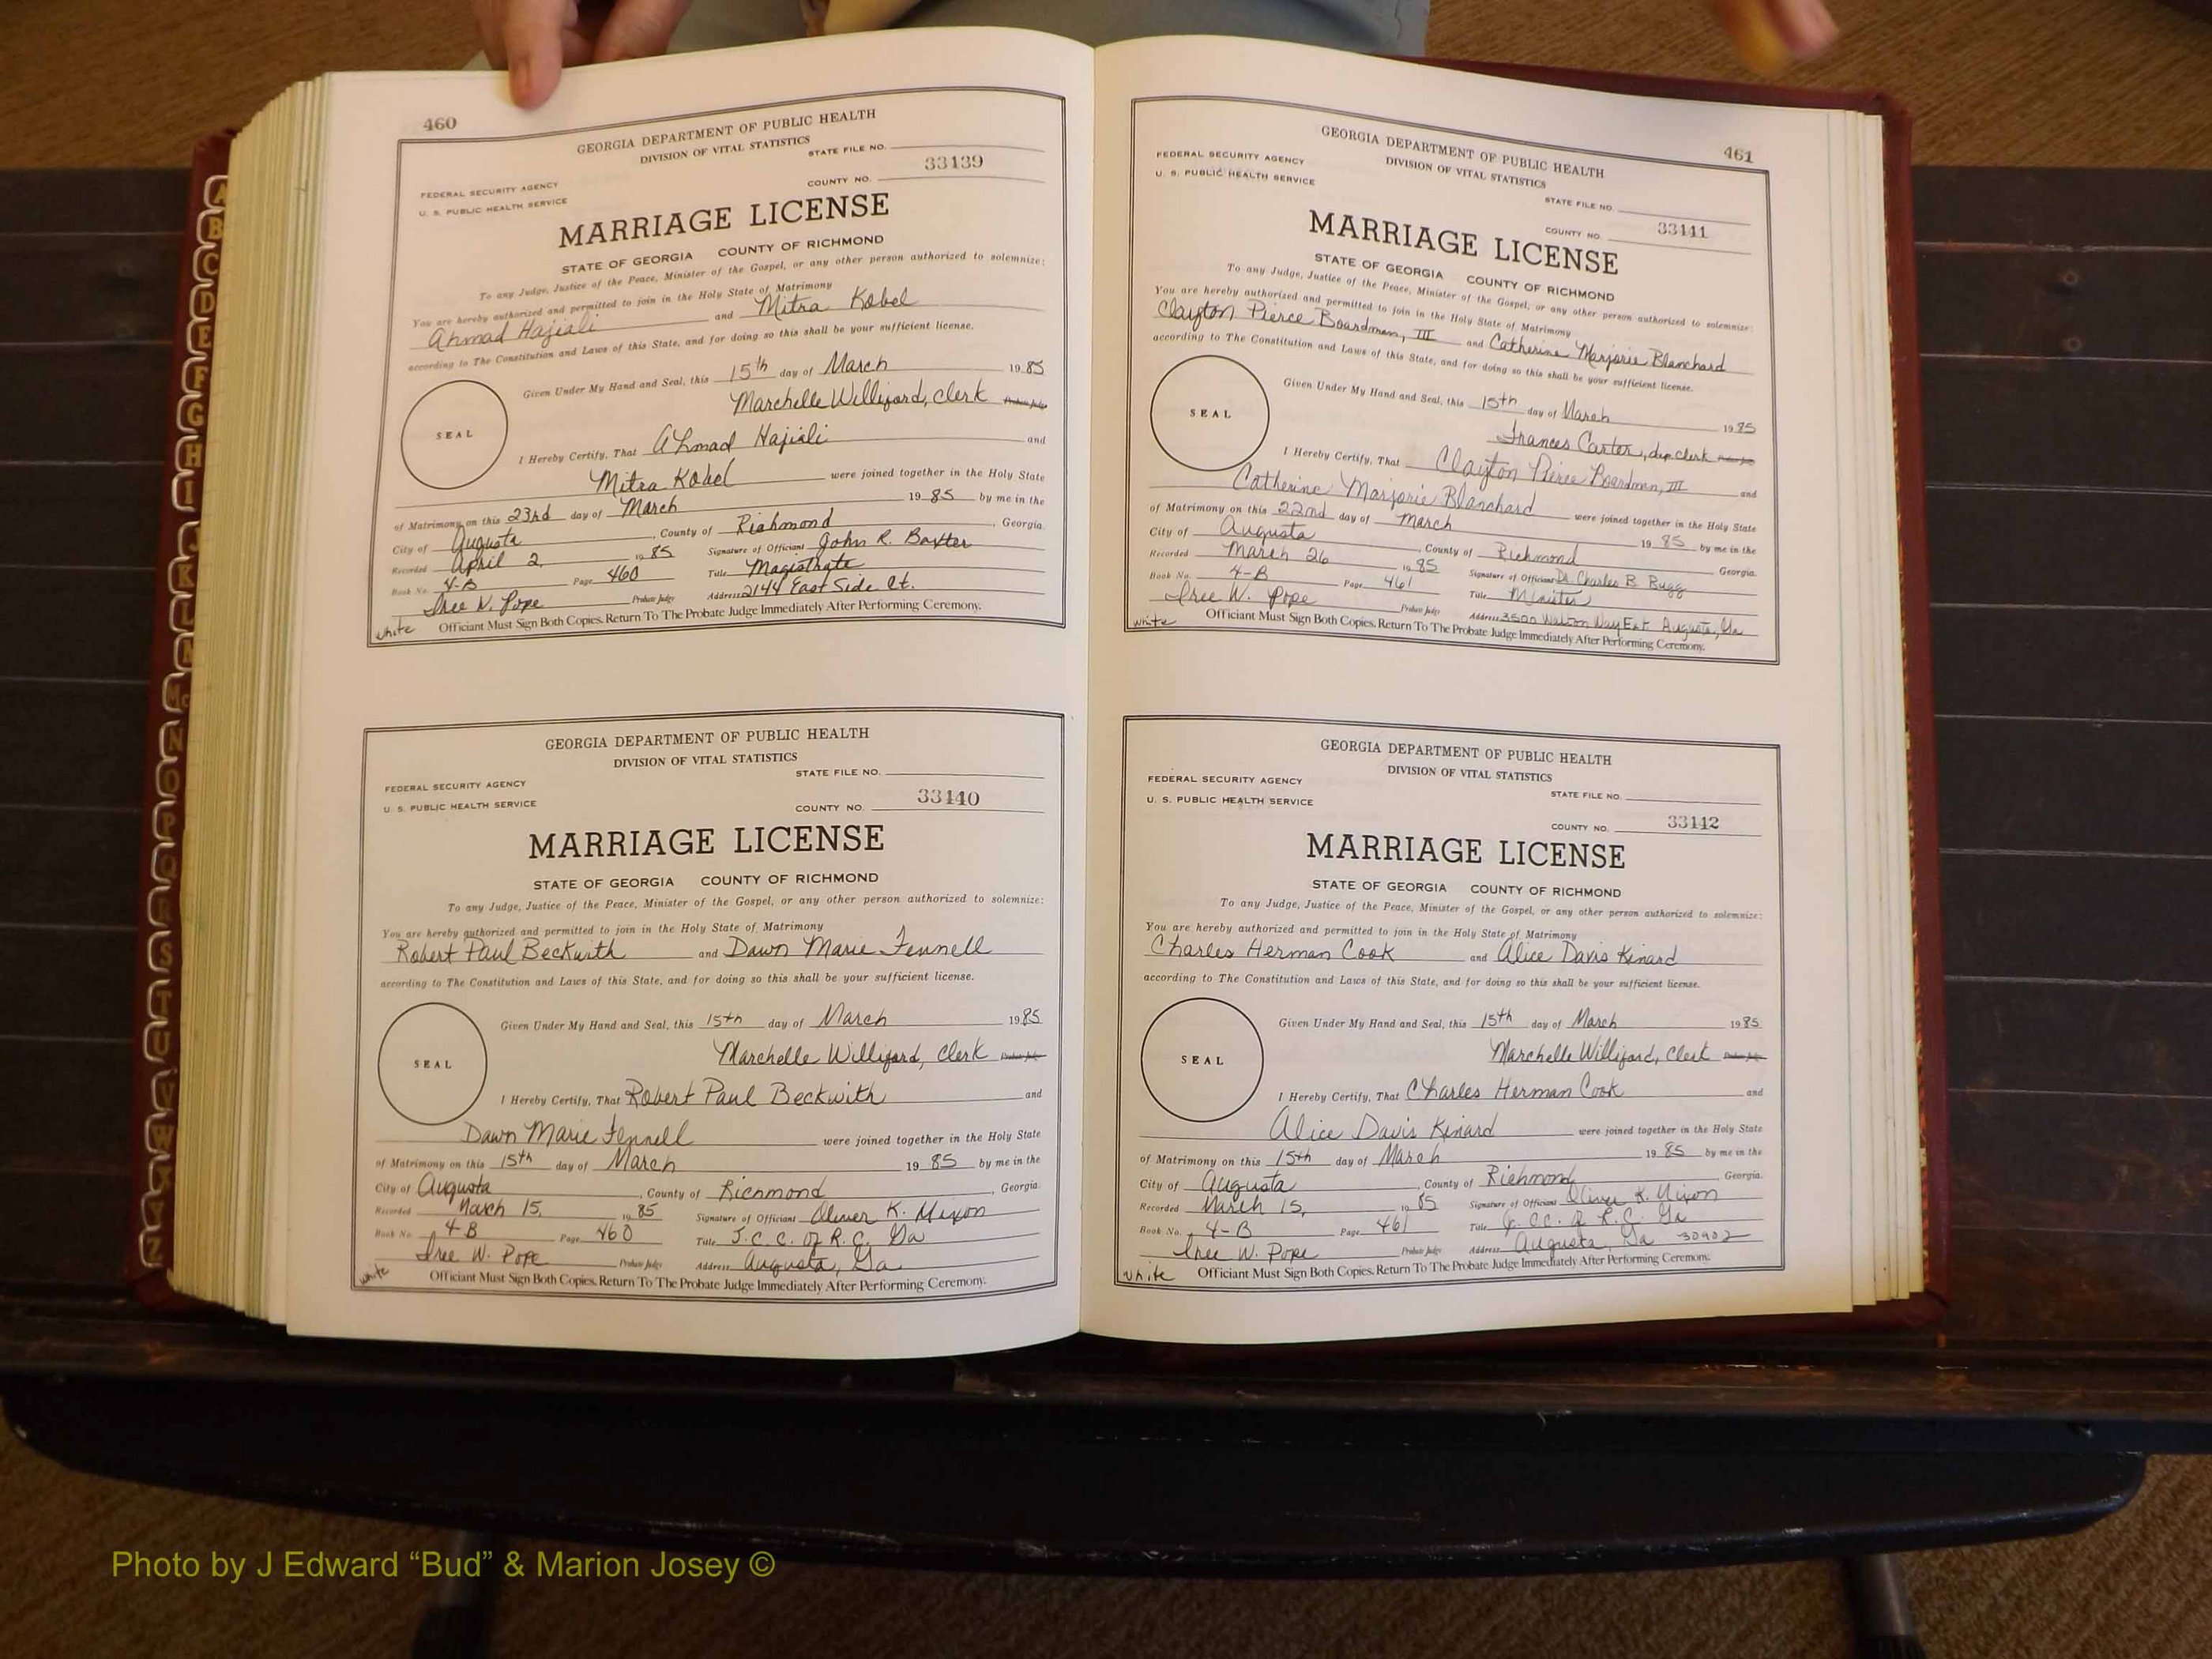 460
GEORGIA DEPARTMENT OF PUBLIC HEALTH
DIVISION OF VITAL STATISTICS
STATE FILE NO.
FEDERAL SECURITY AGENCY
U. S. PUBLIC HEALTH SERVICE
COUNTY NO. 33139
MARRIAGE LICENSE
STATE OF GEORGIA COUNTY OF RICHMOND
To any Judge, Justice of the Peace, Minister of the Gospel, or any other person authorized to solemnize:
You are hereby authorized and permitted to join in the Holy State of Matrimony
Ahmad Hajiali and Mitra Kobel
according to The Constitution and Laws of this State, and for doing so this shall be your sufficient license.
Given Under My Hand and Seal, this 15th day of March 1985
Marchelle Williford, Clerk Probate Judge
SEAL
I Hereby Certify, That Ahmad Hajiali and
Mitra Kobel were joined together in the Holy State
of Matrimony on this 23rd day of March 19 85 by me in the
City of Augusta, County of Richmond, Georgia.
Recorded April 2, 19 85 Signature of Officiant John R. Baxter
Book No. 4-B Page 460 Title Magistrate
Iree W. Pope Probate Judge Address 2144 East Side Ct.
white Officiant Must Sign Both Copies. Return To The Probate Judge Immediately After Performing Ceremony.
GEORGIA DEPARTMENT OF PUBLIC HEALTH
DIVISION OF VITAL STATISTICS
FEDERAL SECURITY AGENCY STATE FILE NO.
U. S. PUBLIC HEALTH SERVICE COUNTY NO. 33140
MARRIAGE LICENSE
STATE OF GEORGIA COUNTY OF RICHMOND
To any Judge, Justice of the Peace, Minister of the Gospel, or any other person authorized to solemnize:
You are hereby authorized and permitted to join in the Holy State of Matrimony
Robert Paul Beckwith and Dawn Marie Fennell
according to The Constitution and Laws of this State, and for doing so this shall be your sufficient license.
Given Under My Hand and Seal, this 15th day of March 1985
Marchelle Williford, Clerk Probate Judge
SEAL
I Hereby Certify, That Robert Paul Beckwith and
Dawn Marie Fennell were joined together in the Holy State
of Matrimony on this 15th day of March 19 85 by me in the
City of Augusta, County of Richmond, Georgia.
Recorded March 15, 19 85 Signature of Officiant Oliver K. Mixon
Book No. 4-B Page 460 Title J.C.C. of R.C. Ga
Iree W. Pope Probate Judge Address Augusta, Ga
white Officiant Must Sign Both Copies. Return To The Probate Judge Immediately After Performing Ceremony.
461
GEORGIA DEPARTMENT OF PUBLIC HEALTH
FEDERAL SECURITY AGENCY DIVISION OF VITAL STATISTICS
U. S. PUBLIC HEALTH SERVICE STATE FILE NO.
COUNTY NO. 33141
MARRIAGE LICENSE
STATE OF GEORGIA COUNTY OF RICHMOND
To any Judge, Justice of the Peace, Minister of the Gospel, or any other person authorized to solemnize:
You are hereby authorized and permitted to join in the Holy State of Matrimony
Clayton Pierce Boardman, III and Catherine Marjorie Blanchard
according to The Constitution and Laws of this State, and for doing so this shall be your sufficient license.
Given Under My Hand and Seal, this 15th day of March 1985
Frances Carter, dep. clerk Probate Judge
SEAL
I Hereby Certify, That Clayton Pierce Boardman, III and
Catherine Marjorie Blanchard were joined together in the Holy State
of Matrimony on this 22nd day of March 19 85 by me in the
City of Augusta, County of Richmond Georgia.
Recorded March 26 19 85 Signature of Officiant Dr. Charles B. Bugg
Book No. 4-B Page 461 Title Minister
Iree W. Pope Probate Judge Address 3500 Walton Way Ext. Augusta, Ga
white Officiant Must Sign Both Copies. Return To The Probate Judge Immediately After Performing Ceremony.
GEORGIA DEPARTMENT OF PUBLIC HEALTH
DIVISION OF VITAL STATISTICS
FEDERAL SECURITY AGENCY STATE FILE NO.
U. S. PUBLIC HEALTH SERVICE
COUNTY NO. 33142
MARRIAGE LICENSE
STATE OF GEORGIA COUNTY OF RICHMOND
To any Judge, Justice of the Peace, Minister of the Gospel, or any other person authorized to solemnize:
You are hereby authorized and permitted to join in the Holy State of Matrimony
Charles Herman Cook and Alice Davis Kinard
according to The Constitution and Laws of this State, and for doing so this shall be your sufficient license.
Given Under My Hand and Seal, this 15th day of March 1985
Marchelle Williford, Clerk Probate Judge
SEAL
I Hereby Certify, That Charles Herman Cook and
Alice Davis Kinard were joined together in the Holy State
of Matrimony on this 15th day of March 19 85 by me in the
City of Augusta, County of Richmond, Georgia.
Recorded March 15, 19 85 Signature of Officiant Oliver K. Mixon
Book No. 4-B Page 461 Title J.C.C. of R.C. Ga
Iree W. Pope Probate Judge Address Augusta, Ga 30902
white Officiant Must Sign Both Copies. Return To The Probate Judge Immediately After Performing Ceremony.
A
B
C
D
E
F
G
H
I
J
K
L
M
Mc
N
O
P
Q
R
S
T
U
V
W
Y
Z
Photo by J Edward “Bud” & Marion Josey ©